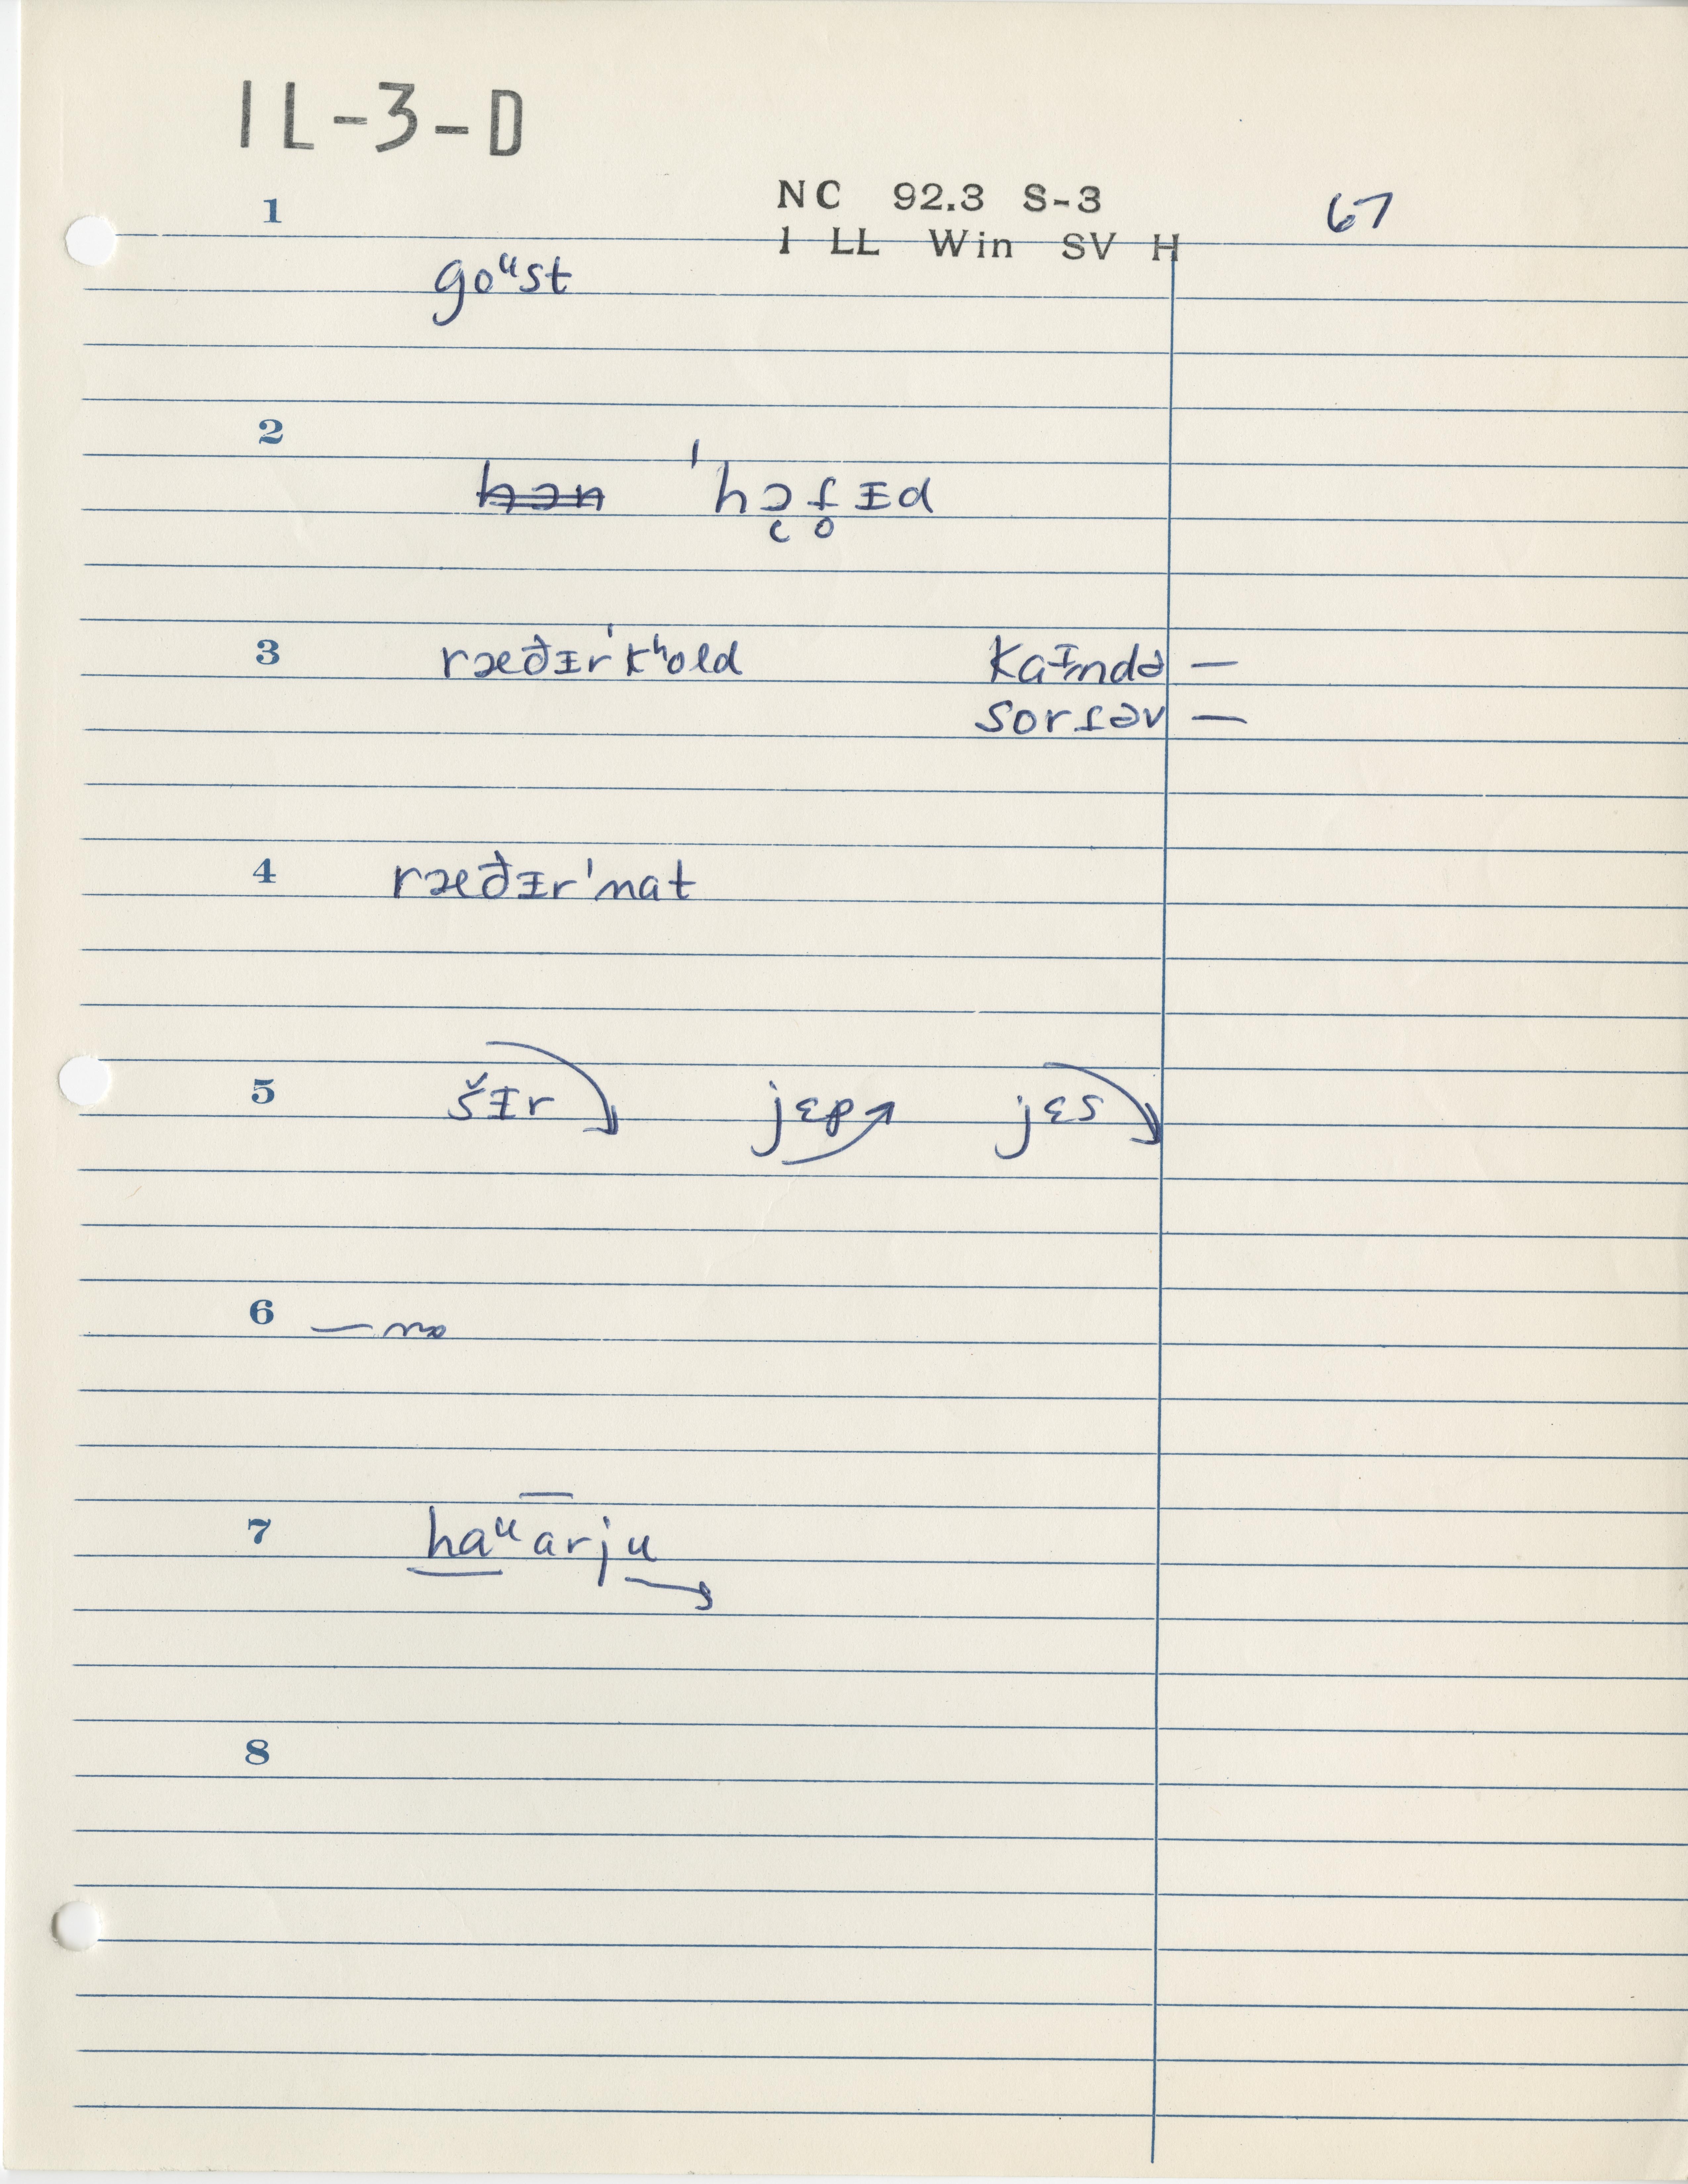 1L-3-D
NC 92.3 S-3
67
1
1 LL Win SV H
goᵘst
2 hɔn ˈhɔ̜f̥ɪd
3 ræðɪrˈkʰold kaᶦndə —
sorɾəv —
4 ræðɪrˈnat
5 šɪr jɛp jɛs
6 — no
7 haᵘarju
8